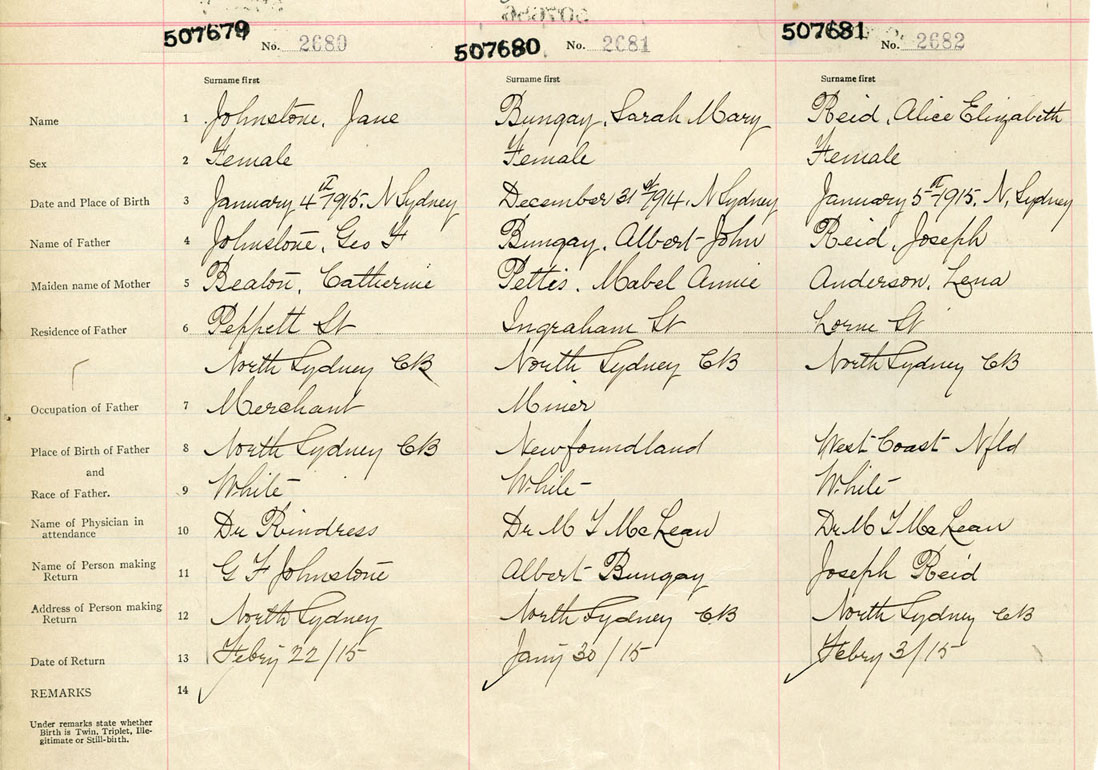 507679 No. 2680 507680 No. 2681 507681 No. 2682
Surname first Surname first Surname first
Name 1 Johnstone, Jane Bungay, Sarah Mary Reid, Alice Elizabeth
Sex 2 Female Female Female
Date and Place of Birth 3 January 4th 1915. N Sydney December 31st 1914. N Sydney January 5th 1915. N. Sydney
Name of Father 4 Johnstone, Geo F Bungay, Albert John Reid, Joseph
Maiden name of Mother 5 Beaton, Catherine Pettis. Mabel Annie Anderson, Lena
Residence of Father 6 Peppett St Ingraham St Lorne St
North Sydney CB North Sydney CB North Sydney CB
Occupation of Father 7 Merchant Miner
Place of Birth of Father 8 North Sydney CB Newfoundland West Coast Nfld
and
Race of Father. 9 White White White
Name of Physician in attendance 10 Dr Rindress Dr M T McLean Dr M T McLean
Name of Person making Return 11 G F Johnstone Albert Bungay Joseph Reid
Address of Person making Return 12 North Sydney North Sydney CB North Sydney CB
Date of Return 13 Febry 22/15 Jany 30/15 Febry 3/15
REMARKS 14
Under remarks state whether
Birth is Twin, Triplet, Ille-
gitimate or Still-birth.